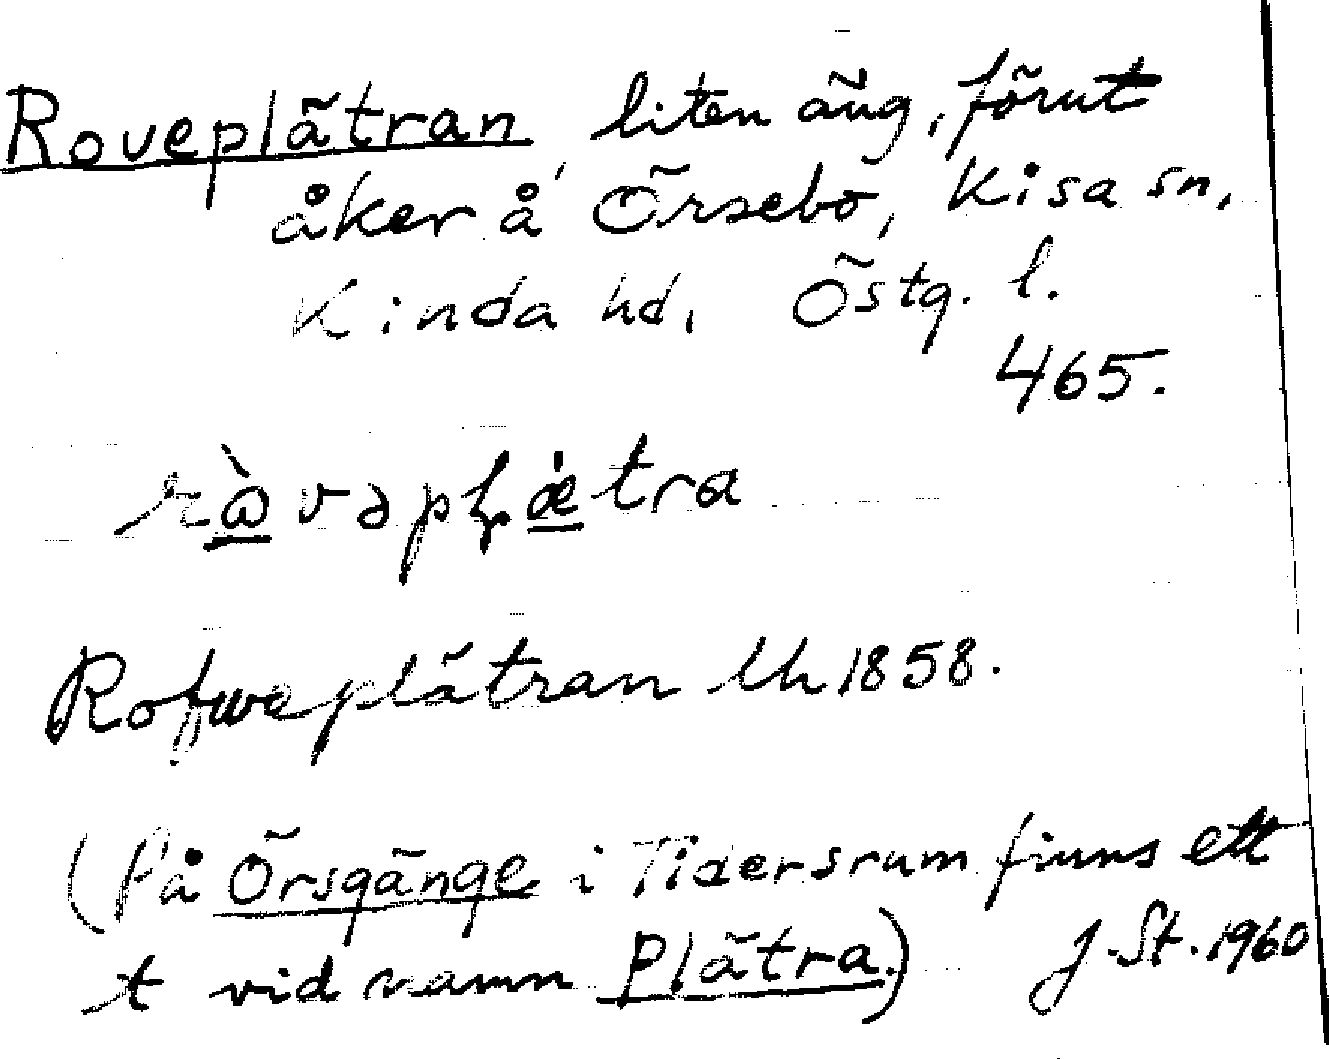 Roveplätran, liten äng, förut
åker å Örsebo, Kisa sn,
Kinda hd, Östg. l.
465.
ràvəpḷætra
Rofweplätran Lh 1858.
(På Örsgänge i Tidersrum finns ett
t vid namn Plätra.) J. St. 1960